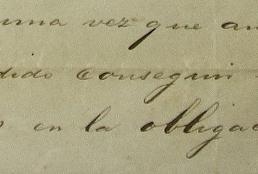 una vez que an
dido conseguir
en la obligac